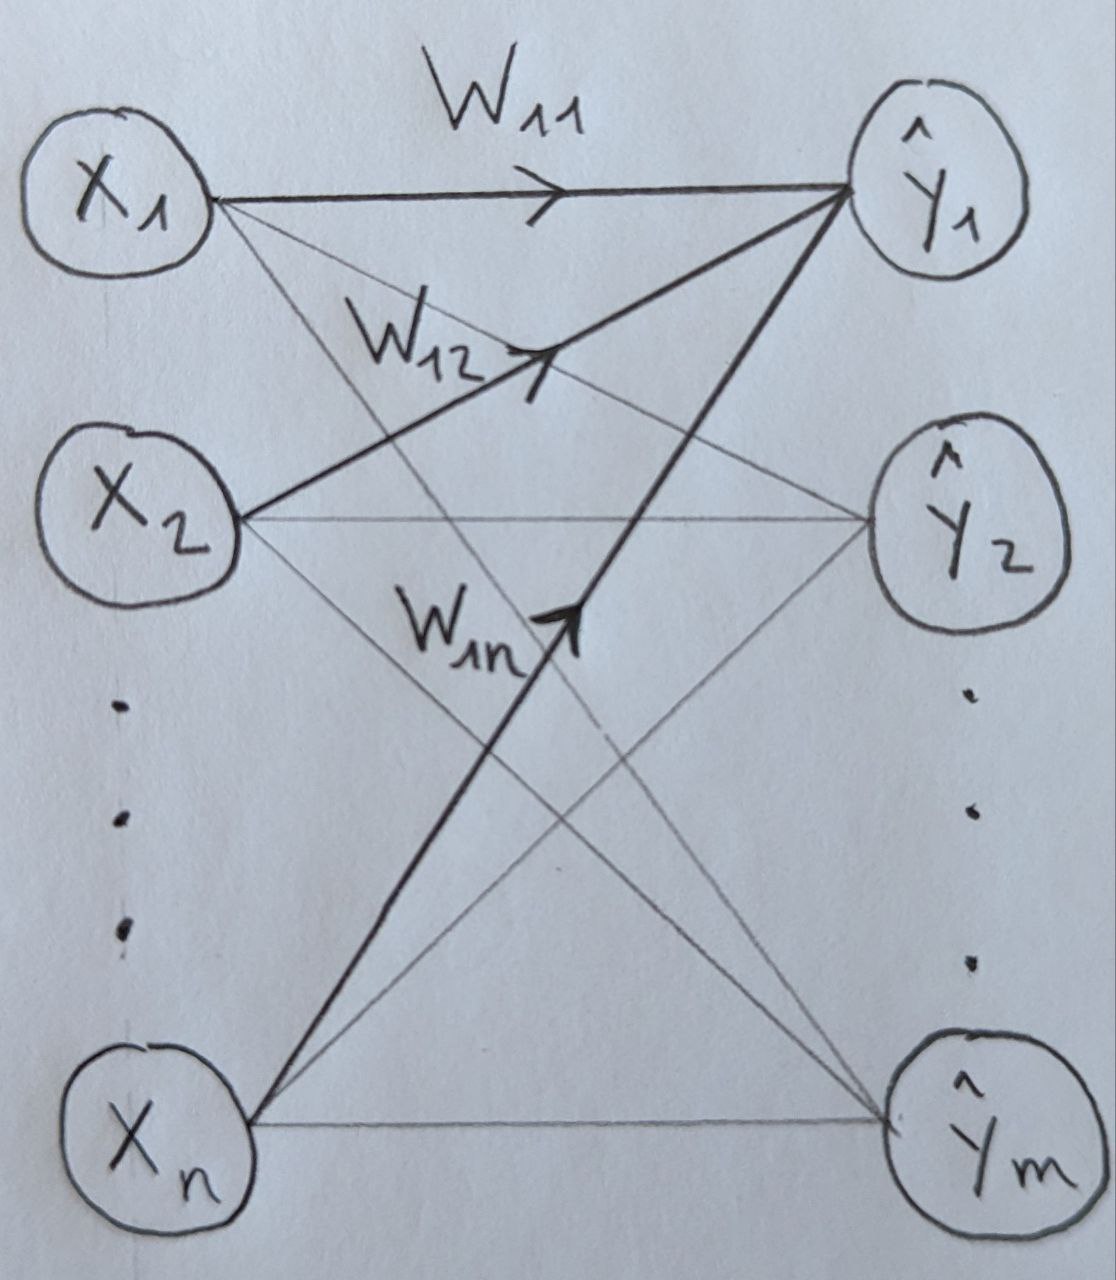 W₁₁
X₁
ŷ₁
W₁₂
X₂
ŷ₂
W₁ₙ
Xₙ
ŷₘ